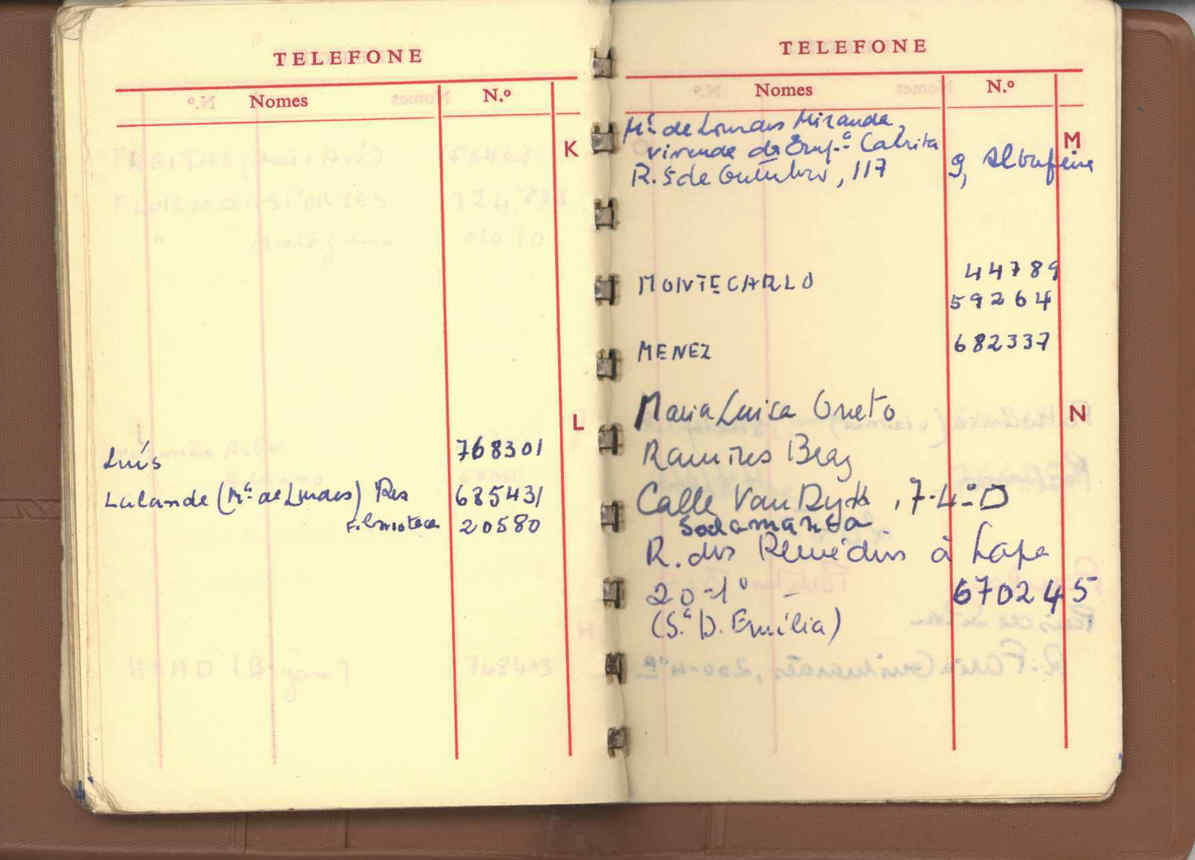 TELEFONE
Nomes N.º
K
L
Luís 768301
Lalande (Mª de Lurdes) Res 685431
Filmoteca 20580
TELEFONE
Nomes N.º
Mª de Lourdes Miranda
R. 5 de Outubro, 117 9, Albufeira
M
MONTECARLO 44789
59264
MENEZ 682337
N
Maria Luisa Cueto
Ramires Braz
Calle Van Dyck, 7-4º D
Sodamanca
R. dos Remédios à Lapa
20-1º - 670245
(Sª D. Emília)